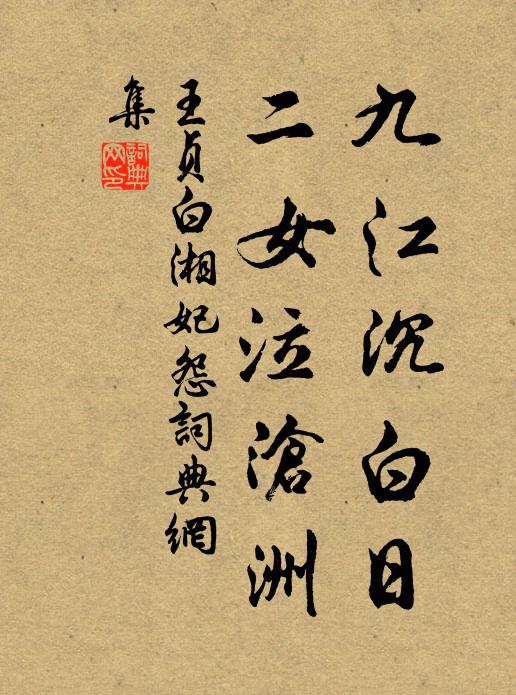 九江沉白日
二女泣滄洲
王貞白湘妃怨詞典網
集
詞典
网印